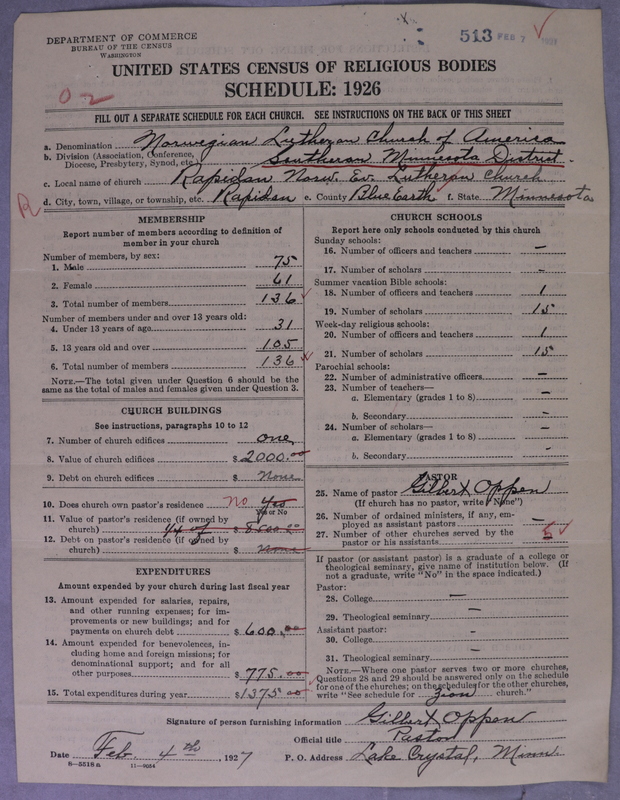 DEPARTMENT OF COMMERCE
BUREAU OF THE CENSUS
WASHINGTON
513 FEB 7 1927
UNITED STATES CENSUS OF RELIGIOUS BODIES
SCHEDULE: 1926
FILL OUT A SEPARATE SCHEDULE FOR EACH CHURCH. SEE INSTRUCTIONS ON THE BACK OF THIS SHEET
a. Denomination Norwegian Lutheran Church of America
b. Division (Association, Conference, Diocese, Presbytery, Synod, etc.) Southeran Minnesota District
c. Local name of church Rapidan Norw. Ev. Lutheran Church
d. City, town, village, or township, etc. Rapidan e. County Blue Earth f. State Minnesota
R
MEMBERSHIP
Report number of members according to definition of
member in your church
Number of members, by sex:
1. Male 75
2. Female 61
3. Total number of members 136
Number of members under and over 13 years old:
4. Under 13 years of age 31
5. 13 years old and over 105
6. Total number of members 136
NOTE.—The total given under Question 6 should be the
same as the total of males and females given under Question 3.
CHURCH BUILDINGS
See instructions, paragraphs 10 to 12
7. Number of church edifices one
8. Value of church edifices $ 2000.00
9. Debt on church edifices $ None
10. Does church own pastor's residence no yes
Yes or No
11. Value of pastor's residence (if owned by
church) 1/4 of $ 8500.00
12. Debt on pastor's residence (if owned by
church) $ none
EXPENDITURES
Amount expended by your church during last fiscal year
13. Amount expended for salaries, repairs,
and other running expenses; for im-
provements or new buildings; and for
payments on church debt $ 600.00
14. Amount expended for benevolences, in-
cluding home and foreign missions; for
denominational support; and for all
other purposes $ 775.00
15. Total expenditures during year $ 1375.00
CHURCH SCHOOLS
Report here only schools conducted by this church
Sunday schools:
16. Number of officers and teachers —
17. Number of scholars -
Summer vacation Bible schools:
18. Number of officers and teachers 1
19. Number of scholars 15
Week-day religious schools:
20. Number of officers and teachers 1
21. Number of scholars 15
Parochial schools:
22. Number of administrative officers —
23. Number of teachers—
a. Elementary (grades 1 to 8) -
b. Secondary -
24. Number of scholars—
a. Elementary (grades 1 to 8) -
b. Secondary -
PASTOR
25. Name of pastor Gilbert Oppen
(If church has no pastor, write "None")
26. Number of ordained ministers, if any, em-
ployed as assistant pastors —
27. Number of other churches served by the
pastor or his assistants 5
If pastor (or assistant pastor) is a graduate of a college or
theological seminary, give name of institution below. (If
not a graduate, write "No" in the space indicated.)
Pastor:
28. College —
29. Theological seminary —
Assistant pastor:
30. College -
31. Theological seminary —
NOTE.—Where one pastor serves two or more churches,
Questions 28 and 29 should be answered only on the schedule
for one of the churches; on the schedules for the other churches,
write "See schedule for Zion church."
Signature of person furnishing information Gilbert Oppen
Official title Pastor
Date Feb. 4th, 1927 P. O. Address Lake Crystal, Minn.
8—5518 a 11—9054